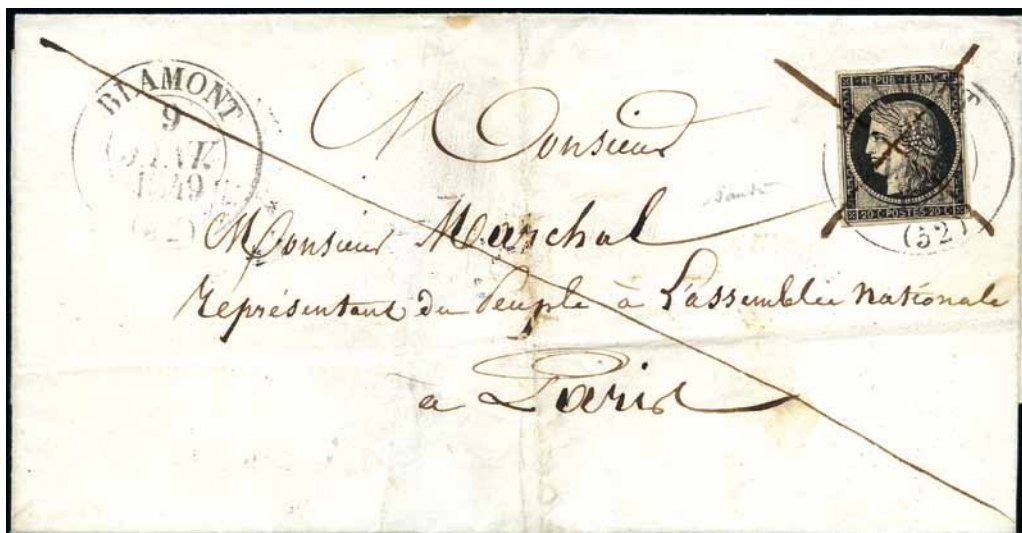 BLAMONT
9
JANV.
1849
(52)
REPUB. FRANC.
20 C POSTES 20 C
(52)
Monsieur
Monsieur Marchal
représentant du peuple à L'assemblée Nationale
a Paris